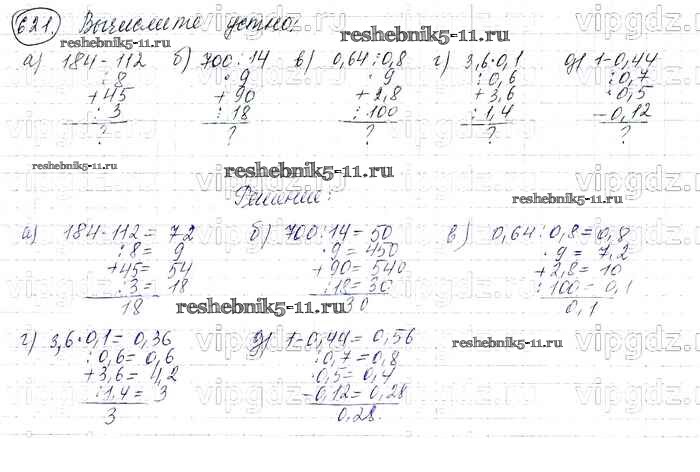 621. Вычислите устно:
reshebnik5-11.ru reshebnik5-11.ru
а) 184-112 б) 700:14 в) 0,64:0,8 г) 3,6·0,1 д) 1-0,44
:8 ·9 ·9 :0,6 :0,7
+45 +90 +2,8 +3,6 ·0,5
:3 :18 :100 :1,4 -0,12
? ? ? ? ?
reshebnik5-11.ru reshebnik5-11.ru
Решение:
reshebnik5-11.ru
а) 184-112=72 б) 700:14=50 в) 0,64:0,8=0,8
:8=9 ·9=450 ·9=7,2
+45=54 +90=540 +2,8=10
:3=18 :18=30 :100=0,1
18 30 0,1
reshebnik5-11.ru
г) 3,6·0,1=0,36 д) 1-0,44=0,56
reshebnik5-11.ru
:0,6=0,6 :0,7=0,8
+3,6=4,2 ·0,5=0,4
:1,4=3 -0,12=0,28
3 0,28.
vipgdz.ru